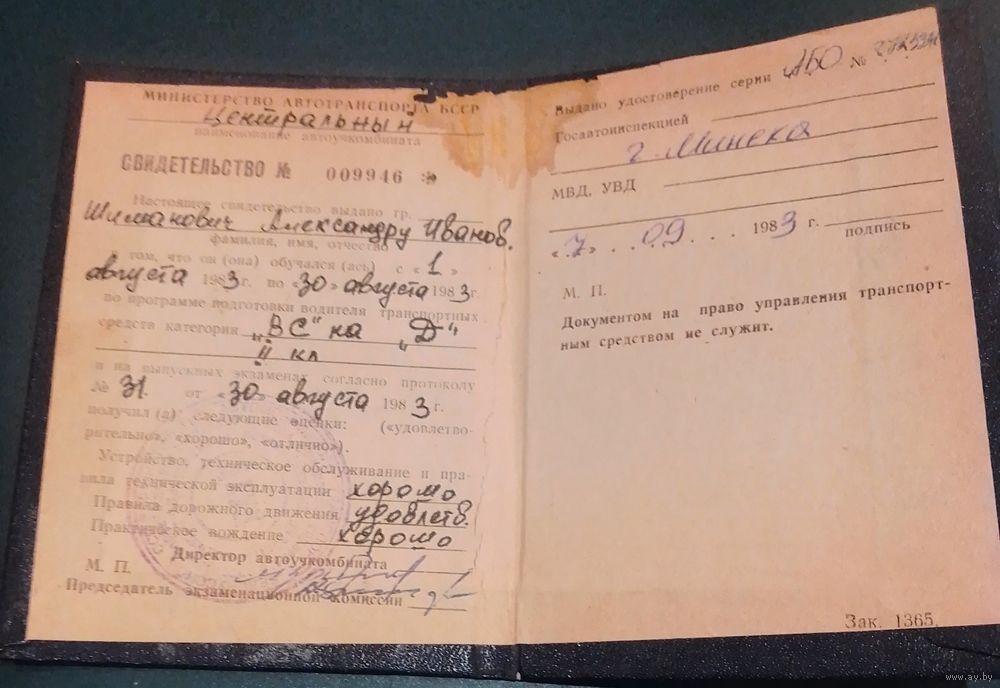 МИНИСТЕРСТВО АВТОТРАНСПОРТА БССР
Центральный
наименование автоучкомбината
СВИДЕТЕЛЬСТВО № 009946
Настоящее свидетельство выдано гр.
Шиманович Александру Иванов.
фамилия, имя, отчество
в том, что он (она) обучался (ась) с «1»
августа 1983 г. по «30» августа 1983 г.
по программе подготовки водителя транспортных
средств категории „ВС" на „Д"
II кл
и на выпускных экзаменах согласно протоколу
№ 31. от «30» августа 1983 г.
получил (а) следующие оценки: («удовлетво-
рительно», «хорошо», «отлично»).
Устройство, техническое обслуживание и пра-
вила технической эксплуатации хорошо
Правила дорожного движения удовлетв.
Практическое вождение хорошо
Директор автоучкомбината
М. П.
Председатель экзаменационной комиссии
Выдано удостоверение серии АБО №
Госавтоинспекцией
г. Минска
МВД, УВД
«7» . . 09 . . . 1983 г.
подпись
М. П.
Документом на право управления транспорт-
ным средством не служит.
Зак. 1365.
www.ay.by